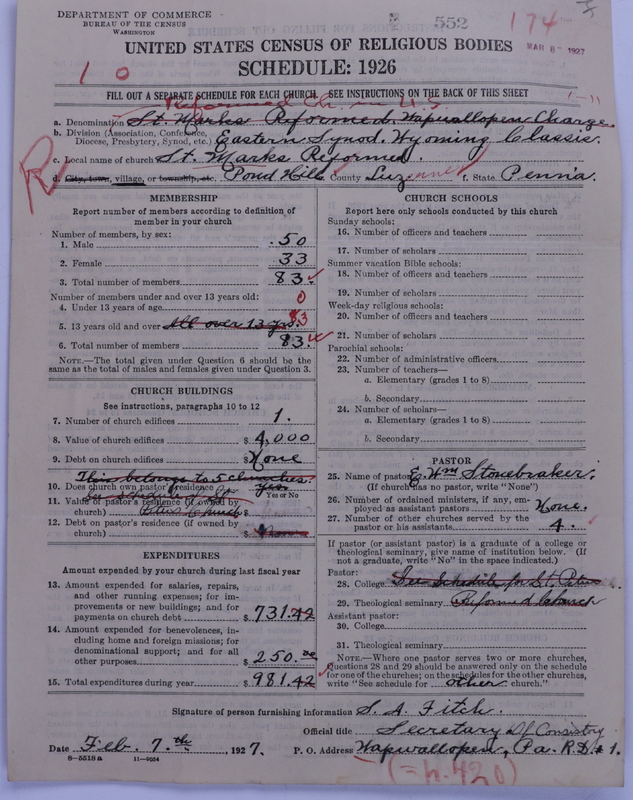 DEPARTMENT OF COMMERCE
BUREAU OF THE CENSUS
WASHINGTON
552
174
MAR 8 1927
UNITED STATES CENSUS OF RELIGIOUS BODIES
SCHEDULE: 1926
1 0
FILL OUT A SEPARATE SCHEDULE FOR EACH CHURCH. SEE INSTRUCTIONS ON THE BACK OF THIS SHEET
Reformed Ch. in U.S.
a. Denomination St. Marks Reformed. Wapwallopen Charge.
b. Division (Association, Conference, Diocese, Presbytery, Synod, etc.) Eastern Synod. Wyoming Classis.
c. Local name of church St. Marks Reformed.
R
d. City, town, village, or township, etc. Pond Hill County Luzerne f. State Penna.
MEMBERSHIP
Report number of members according to definition of
member in your church
Number of members, by sex:
1. Male 50
2. Female 33
3. Total number of members 83
Number of members under and over 13 years old:
4. Under 13 years of age 0
5. 13 years old and over All over 13 yrs. 83
6. Total number of members 83
NOTE.—The total given under Question 6 should be
same as the total of males and females given under Question 3.
CHURCH BUILDINGS
See instructions, paragraphs 10 to 12
7. Number of church edifices 1.
8. Value of church edifices $ 4,000
9. Debt on church edifices $ None
This belongs to 5 churches.
10. Does church own pastor's residence? Yes
Yes or No
see schedule of St.
11. Value of pastor's residence (if owned by
church) Peters Church $
12. Debt on pastor's residence (if owned by
church) $ None
EXPENDITURES
Amount expended by church during last fiscal year
13. Amount expended for salaries, repairs,
and other running expenses; for im-
provements or new buildings; and for
payments on church debt $ 731.42
14. Amount expended for benevolences, in-
cluding home and foreign missions; for
denominational support; and for all
other purposes $ 250.00
15. Total expenditures during year $ 981.42
CHURCH SCHOOLS
Report here only schools conducted by this church
Sunday schools:
16. Number of officers and teachers
17. Number of scholars
Summer vacation Bible schools:
18. Number of officers and teachers
19. Number of scholars
Week-day religious schools:
20. Number of officers and teachers
21. Number of scholars
Parochial schools:
22. Number of administrative officers
23. Number of teachers—
a. Elementary (grades 1 to 8)
b. Secondary
24. Number of scholars—
a. Elementary (grades 1 to 8)
b. Secondary
PASTOR
25. Name of pastor E. Wm Stonebraker.
(If church has no pastor, write "None")
26. Number of ordained ministers, if any, em-
ployed as assistant pastors None.
27. Number of other churches served by the
pastor or his assistants 4.
If pastor (or assistant pastor) is a graduate of a college or
theological seminary, give name of institution below. (If
not a graduate, write "No" in the space indicated.)
Pastor:
28. College See Schedule for St. Peters
29. Theological seminary Reformed Church
Assistant pastor:
30. College
31. Theological seminary
NOTE.—Where one pastor serves two or more churches,
Questions 28 and 29 should be answered only on the schedule
for one of the churches; on the schedules for the other churches,
write "See schedule for other church."
Signature of person furnishing information S. A. Fitch.
Official title Secretary of Consistory
Date Feb. 7. th, 1927. P. O. Address Wapwallopen, Pa. R.D. # 1.
8—5518a 11—9024
(= h. 420)